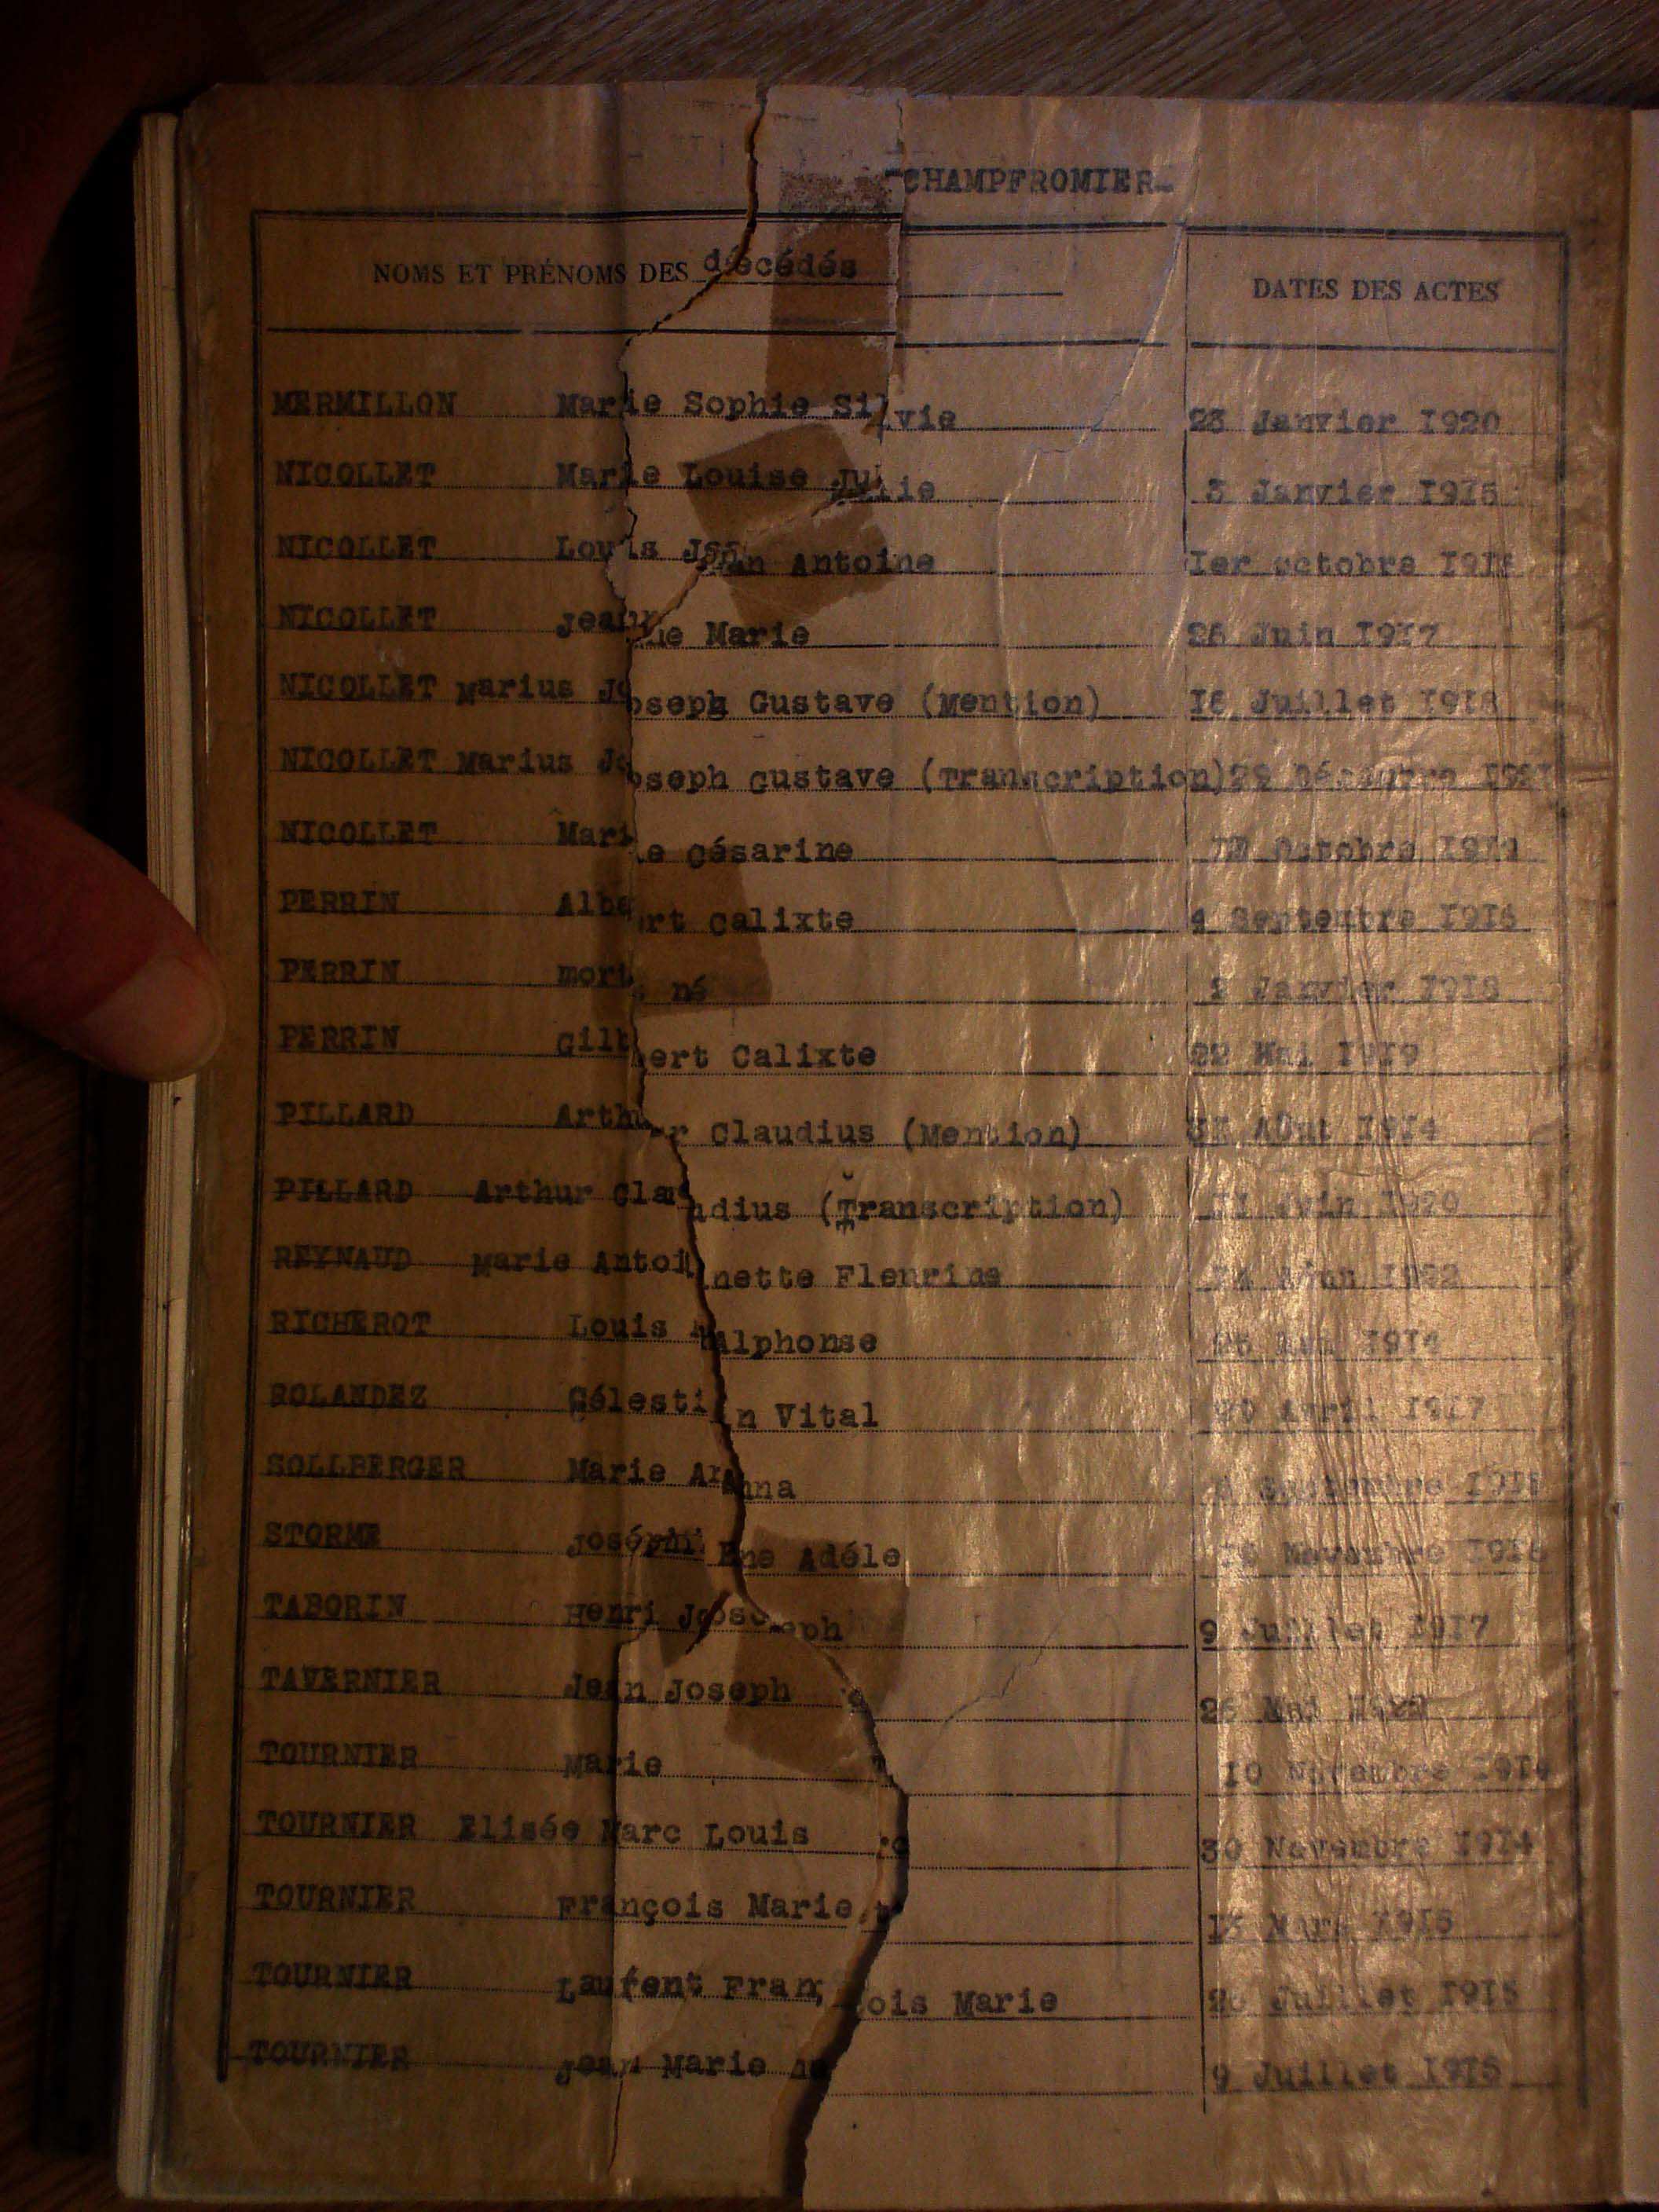 -CHAMPFROMIER-
NOMS ET PRÉNOMS DES décédés DATES DES ACTES
MERMILLON Marie Sophie Silvie 23 Janvier 1920
NICOLLET Marie Louise Julie 3 Janvier 1915
NICOLLET Louis Jean Antoine Ier octobre
NICOLLET Jeanne Marie Juin 1917
NICOLLET Marius Joseph Gustave (Mention) Juillet 1918
NICOLLET Marius Joseph Gustave (Transcription)
NICOLLET Marie Césarine Octobre 1919
PERRIN Albert Calixte 4 Septembre
PERRIN mort né Janvier
PERRIN Gilbert Calixte 22 Mai 1919
PILLARD Arthur Claudius (Mention) Août 1914
PILLARD Arthur Claudius (Transcription) 1920
REYNAUD Marie Antoinette Fleurine 1922
RICHEROT Louis Alphonse 1914
ROLANDEZ Célestin Vital Avril 1917
SOLLBERGER Marie Anna Septembre
STORME Joséphine Adéle Novembre
TABORIN Henri Joseph 9 Juillet 1917
TAVERNIER Jean Joseph Mai
TOURNIER Marie 10 Novembre 1914
TOURNIER Elisée Marc Louis 30 Novembre 1914
TOURNIER François Marie Mars 1915
TOURNIER Laurent François Marie Juillet 1915
TOURNIER Jean Marie 9 Juillet 1915